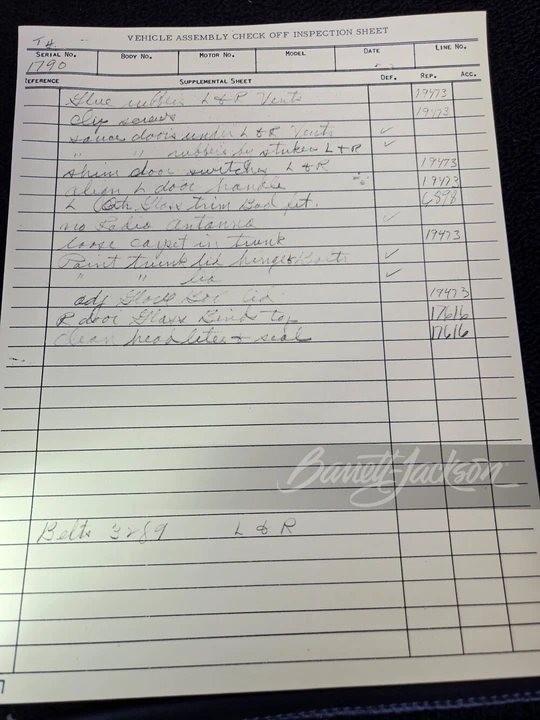 VEHICLE ASSEMBLY CHECK OFF INSPECTION SHEET
SERIAL NO. BODY NO. MOTOR NO. MODEL DATE LINE NO.
1790
REFERENCE SUPPLEMENTAL SHEET DEF. REP. ACC.
Glue rubbers L & R Vents 19473
clip screws 19473
doors under L & R Vents ✓
" " rubbers by strikers L & R ✓
shim door switches L & R 19473
align L door handle 19473
L Qtr. Glass trim Bad fit. 6898
no Radio antanna ✓
loose carpet in trunk 19473
Paint trunk lid hinges & bolts ✓
" " lid ✓
adj Glove Box lid 19473
R door Glass Binds top 17616
clean head liter & seal 17616
Barrett-Jackson
Belts 3289 L & R